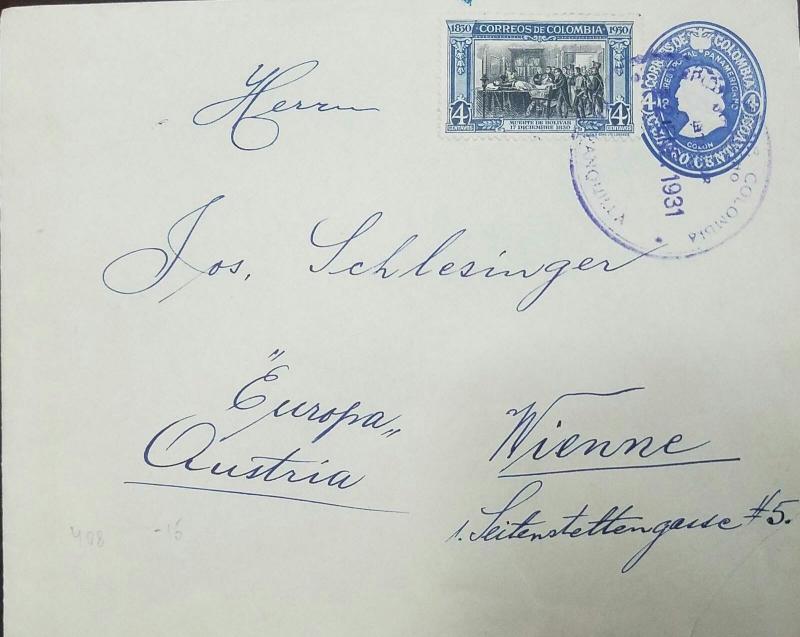 1830 CORREOS DE COLOMBIA 1930
4 4
CENTAVOS MUERTE DE BOLIVAR CENTAVOS
17 DICIEMBRE 1830
CORREOS DE COLOMBIA
PANAMERICANO
4 4
COLON
CUATRO CENTAVOS
COLOMBIA
1931
Herrn
Jos. Schlesinger
"Europa"
Austria
Wienne
1. Seitenstettengasse #5.
408 -15